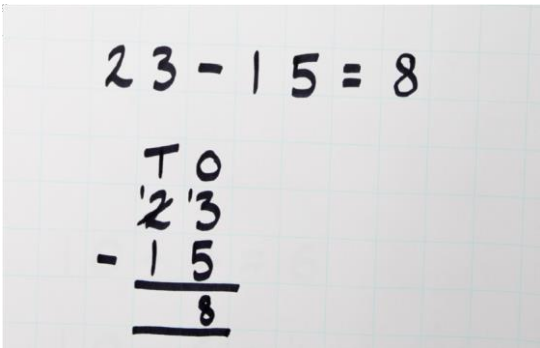 23-15=8
T O
'2 '3
- 1 5
8